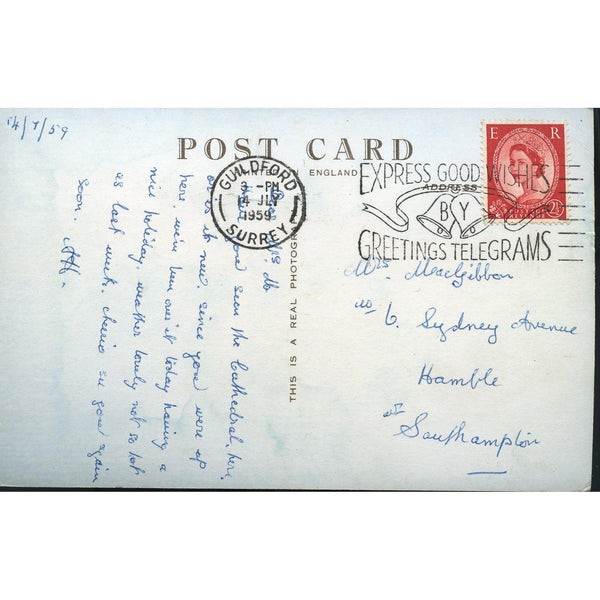 14/7/59
POST CARD
ENGLAND
THIS IS A REAL PHOTOGRAPH
GUILDFORD
3 - PM
14 JLY
1959
SURREY
EXPRESS GOOD WISHES
ADDRESS
BY
GREETINGS TELEGRAMS
E R
2½
Dear Mrs Mc
seen the Cathedral, here,
as it is now since you were up
here, we've been over it today having a
nice holiday, weather lovely not so hot
as last week, cheerio see you again
soon.
Mrs. MacGibbon
6. Sydney Avenue
Hamble
Southampton